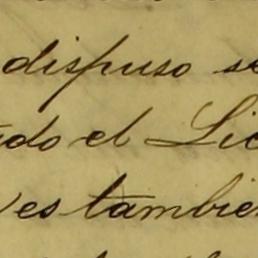 dispuso se
do el Lic
es tambien